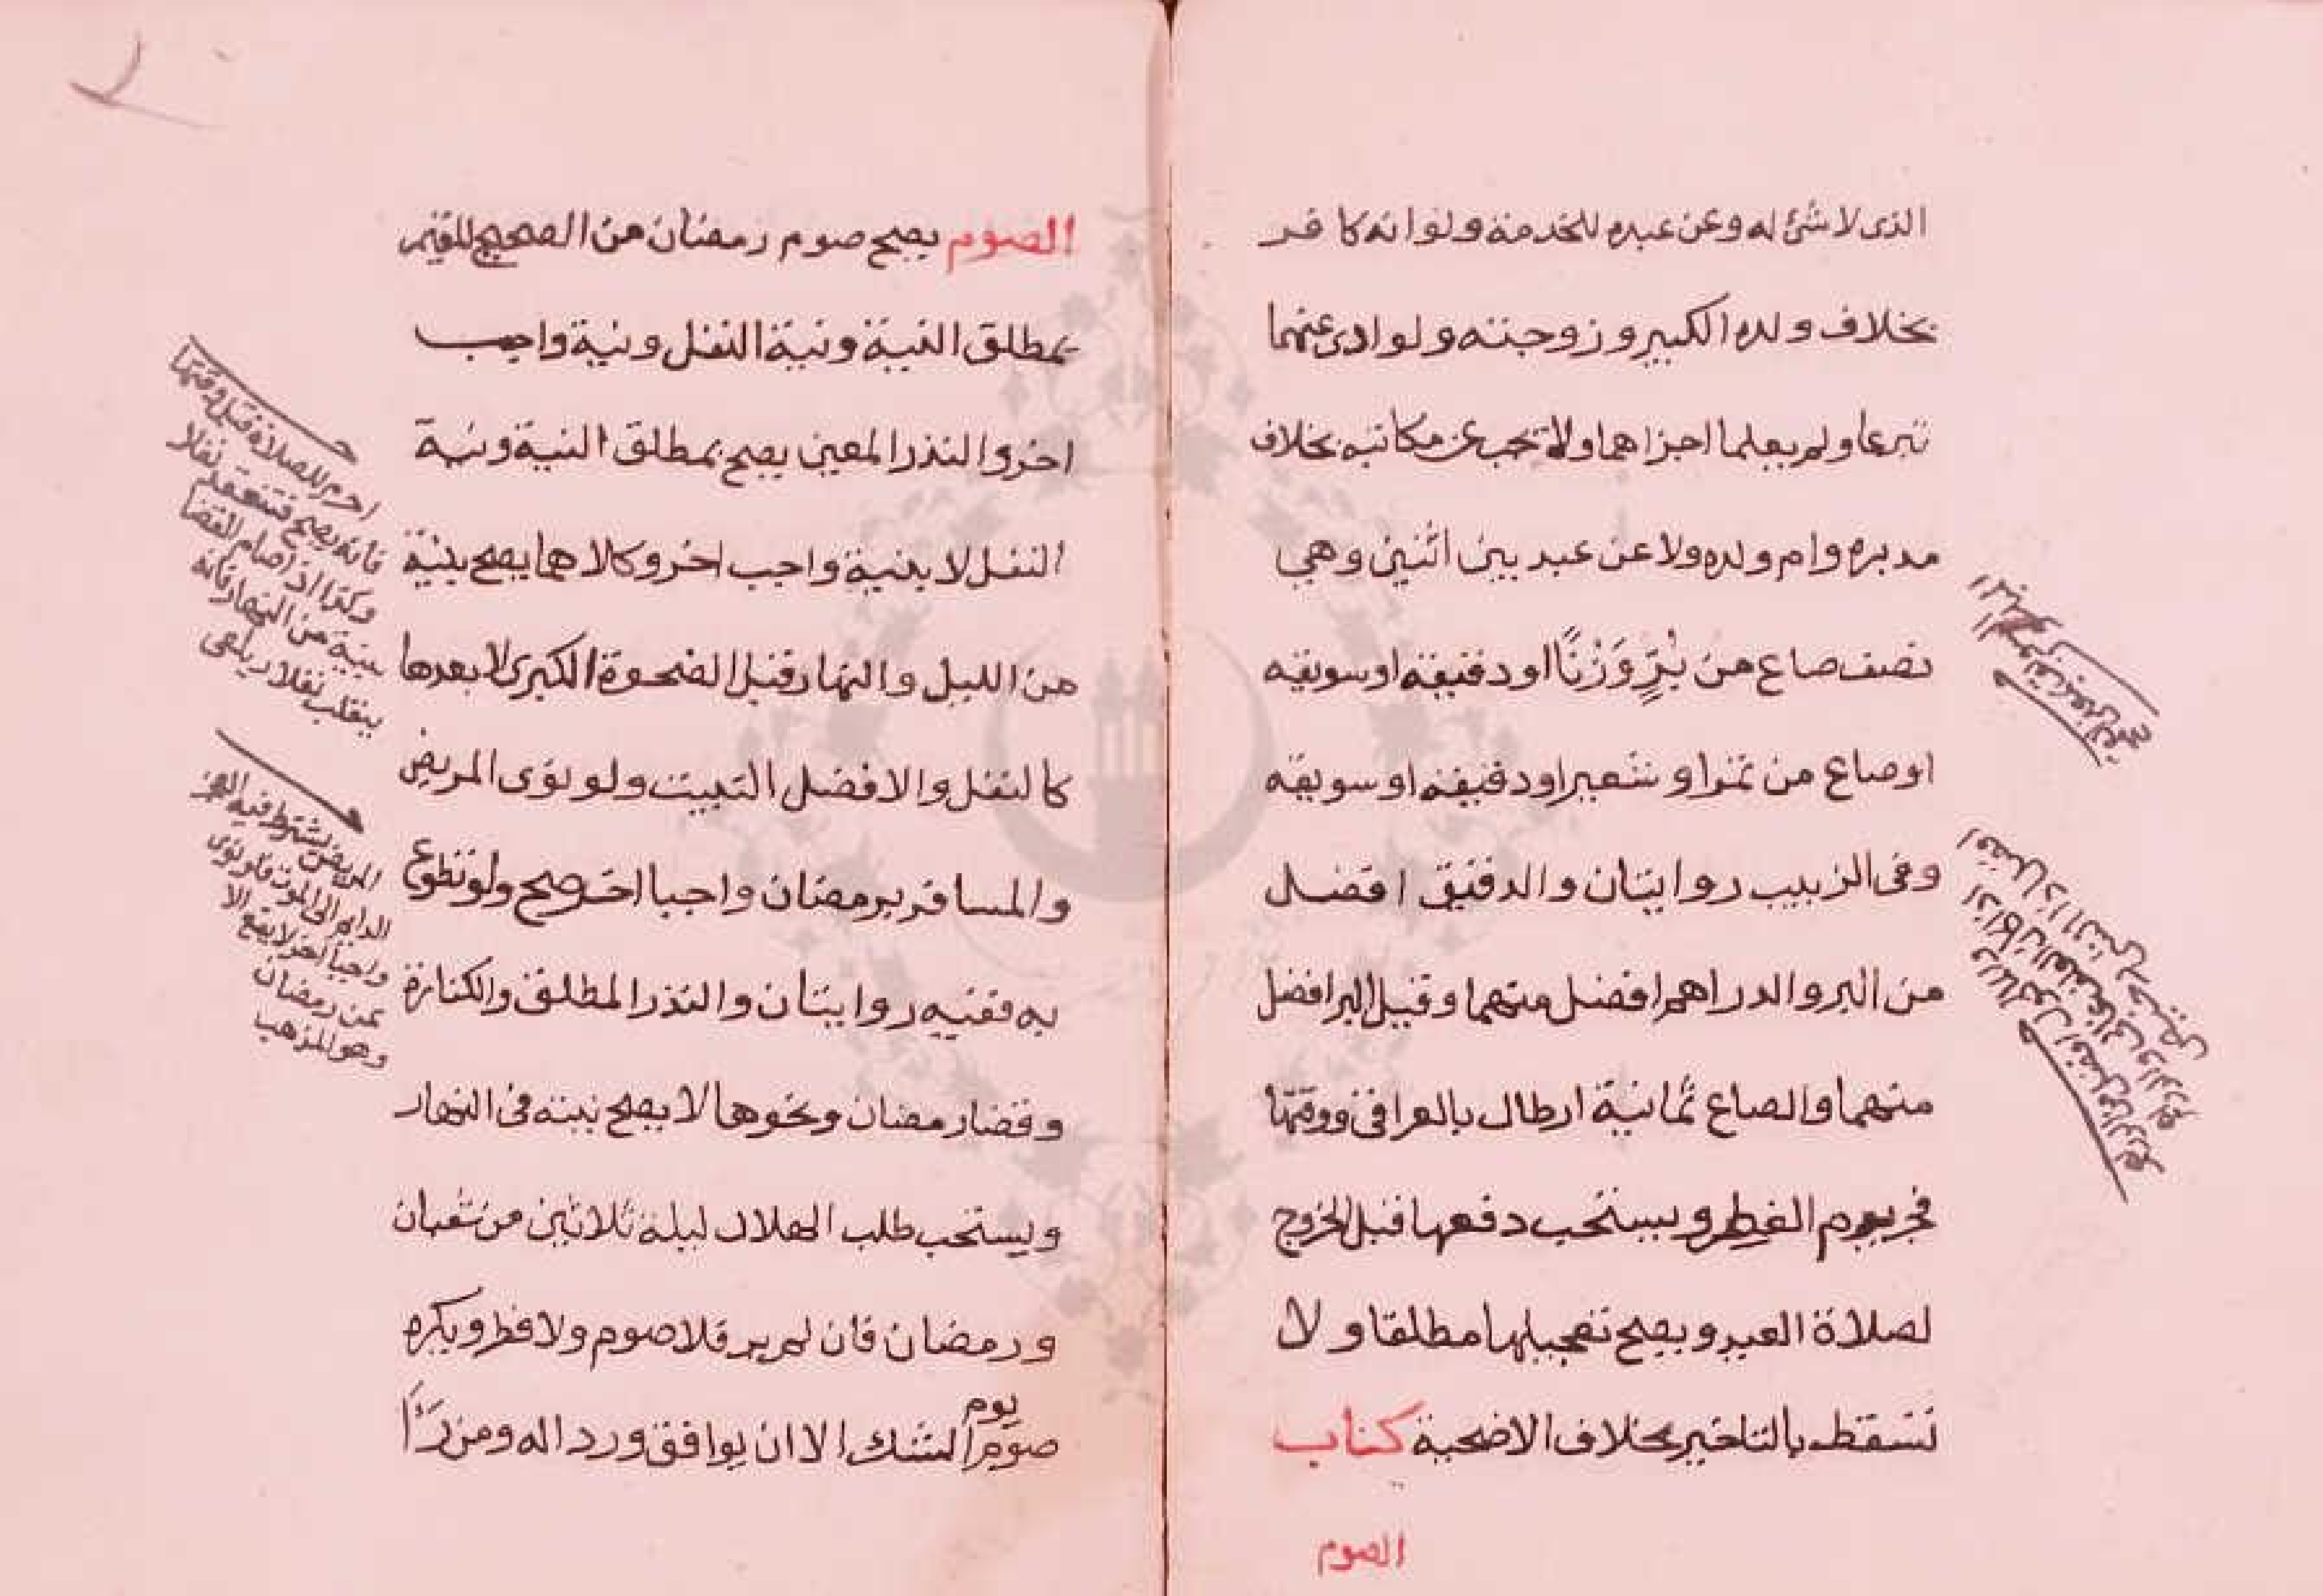 الذى لا شئ له وعن عبده للخدمة ولو انه كافر
بخلاف ولده الكبير وزوجته ولو ادى عنهما
تبرعا ولم يعلما اجزاهما ولا تجب عن مكاتبه بخلاف
مدبره وام ولده ولا عن عبد بين اثنين وهي
نصف صاع من بُرٍّ وَزْنًا او دقيقه او سويقه
او صاع من تمر او شعير او دقيقه او سويقه
وفى الزبيب روايتان والدقيق افضل
من البر والدراهم افضل منهما وقيل البر افضل
منهما والصاع ثمانية ارطال بالعراقى ووقتها
فجر يوم الفطر ويستحب دفعها قبل الخروج
لصلاة العيد ويصح تعجيلها مطلقا ولا
تسقط بالتاخير بخلاف الاضحية كتاب
الصوم
الصوم يصح صوم رمضان من الصحيح المقيم
بمطلق النية ونية النفل ونية واجب
اخر والنذر المعين يصح بمطلق النية ونية
النفل لا بنية واجب اخر وكلاهما يصح بنية
من الليل والنهار قبل الضحوة الكبرى لا بعدها
كالنفل والافضل التبييت ولو نوى المريض
والمسافر برمضان واجبا اخر صح ولو تطوع
به ففيه روايتان والنذر المطلق والكفارة
وقضا رمضان ونحوها لا يصح نيته فى النهار
ويستحب طلب الهلال ليلة ثلاثين من شعبان
ورمضان فان لم ير فلا صوم ولا فطر ويكره
صوم يوم الشك الا ان يوافق وردا له ومن رَأَا
احرم للصلاة قبل وقتها
فانه يصح فتنعقد نفلا
وكذا اذا صام القضا
بنية من النهار فانه
ينقلب نفلا
المريض يشترط فيه العجز
الدايم الى الموت فلو نوى
واجبا اخر لا يقع الا
عن رمضان
وهو المذهب